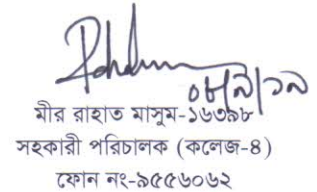 ০৮/১/১৯
মীর রাহাত মাসুম-১৬৩৯৮
সহকারী পরিচালক (কলেজ-৪)
ফোন নং-৯৫৫৬০৬২